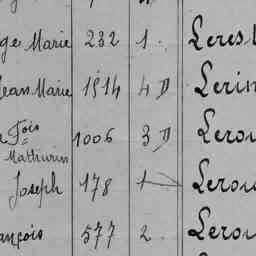 ge Marie 232 1. Lerest
Jean Marie 1514 4 D Lerin
e Fois 1006 3 D Lerou
Mathurin
Joseph 178 1 Lerou
ançois 577 2. Lerou